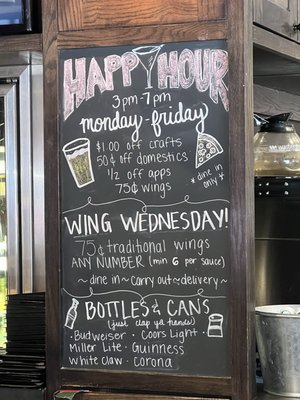 HAPPY HOUR
3pm-7pm
monday-friday
$1.00 off crafts
50¢ off domestics
1/2 off apps
75¢ wings
*dine in
only*
WING WEDNESDAY!
75¢ traditional wings
ANY NUMBER (min 6 per sauce)
~dine in~carry out~delivery~
BOTTLES & CANS
(just clap ya hands)
·Budweiser ·Coors Light·
Miller Lite·Guinness
White Claw·Corona